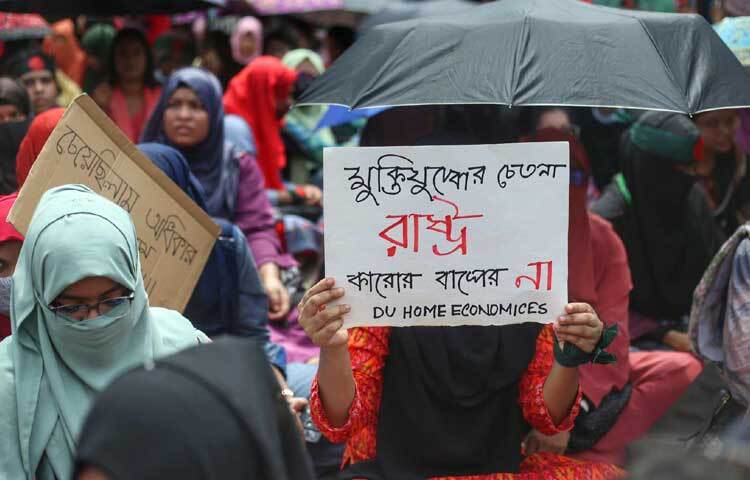 চেয়েছিলাম অধিকার
মুক্তিযুদ্ধের চেতনা
রাষ্ট্র
কারোর বাপের না
DU HOME ECONOMICES